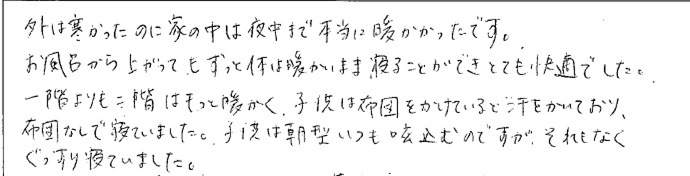 外は寒かったのに家の中は夜中まで本当に暖かかったです。
お風呂から上がってもずっと体は暖かいまま寝ることができとても快適でした。
一階よりも二階はもっと暖かく、子供は布団をかけていると汗をかいており、
布団なしで寝ていました。子供は朝型いつも咳込むのですが、それもなく
ぐっすり寝ていました。